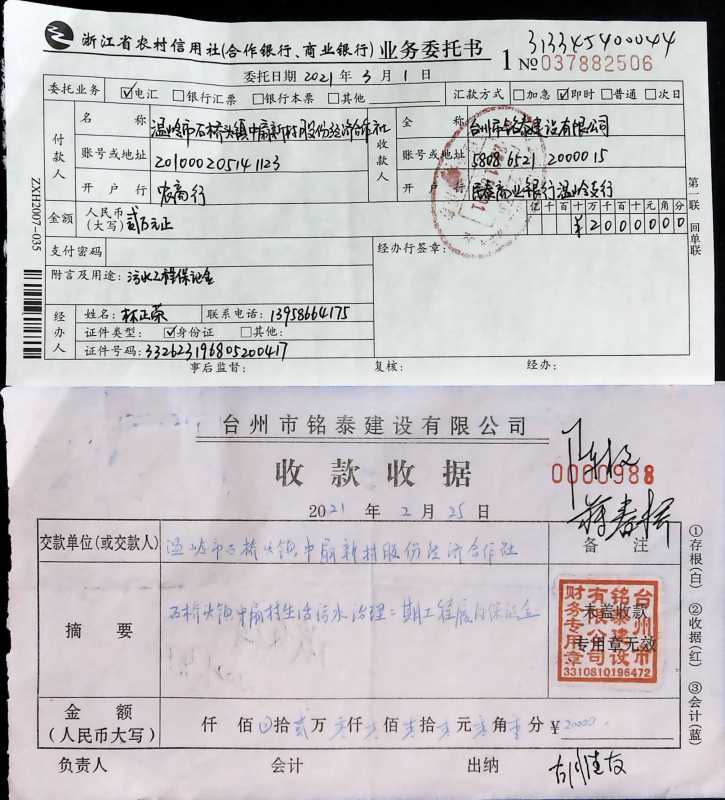 浙江省农村信用社(合作银行、商业银行)业务委托书
1 №037882506
313345400044
委托日期 2021年 3月 1日
委托业务 ☑电汇 □银行汇票 □银行本票 □其他 汇款方式 □加急 ☑即时 □普通 □次日
付款人 名称 温岭市石桥头镇中扇新村股份经济合作社
收款人 全称 台州市铭泰建设有限公司
账号或地址 201000205141123 账号或地址 580865212000015
开户行 农商行 开户行 民泰商业银行温岭支行
金额 人民币(大写) 贰万元正 亿千百十万千百十元角分 ¥2000000
支付密码 经办行签章:
附言及用途: 污水工程保证金
经办人 姓名: 林正荣 联系电话: 13958664175
证件类型: ☑身份证 □其他:
证件号码: 332623196805200417
事后监督: 复核: 经办:
第一联 回单联
ZXH2007-035
台州市铭泰建设有限公司
收款收据
0000988
2021年 2月 25日
交款单位(或交款人) 温岭市石桥头镇中扇新村股份经济合作社 备注
摘要 石桥头镇中扇村生活污水治理二期工程履约保证金
台州市铭泰建设有限公司财务专用章
3310810196472
未盖收款
专用章无效
金额(人民币大写) 仟 佰 拾贰万零仟零佰零拾零元零角零分 ¥20000
负责人 会计 出纳
①存根(白) ②收据(红) ③会计(蓝)